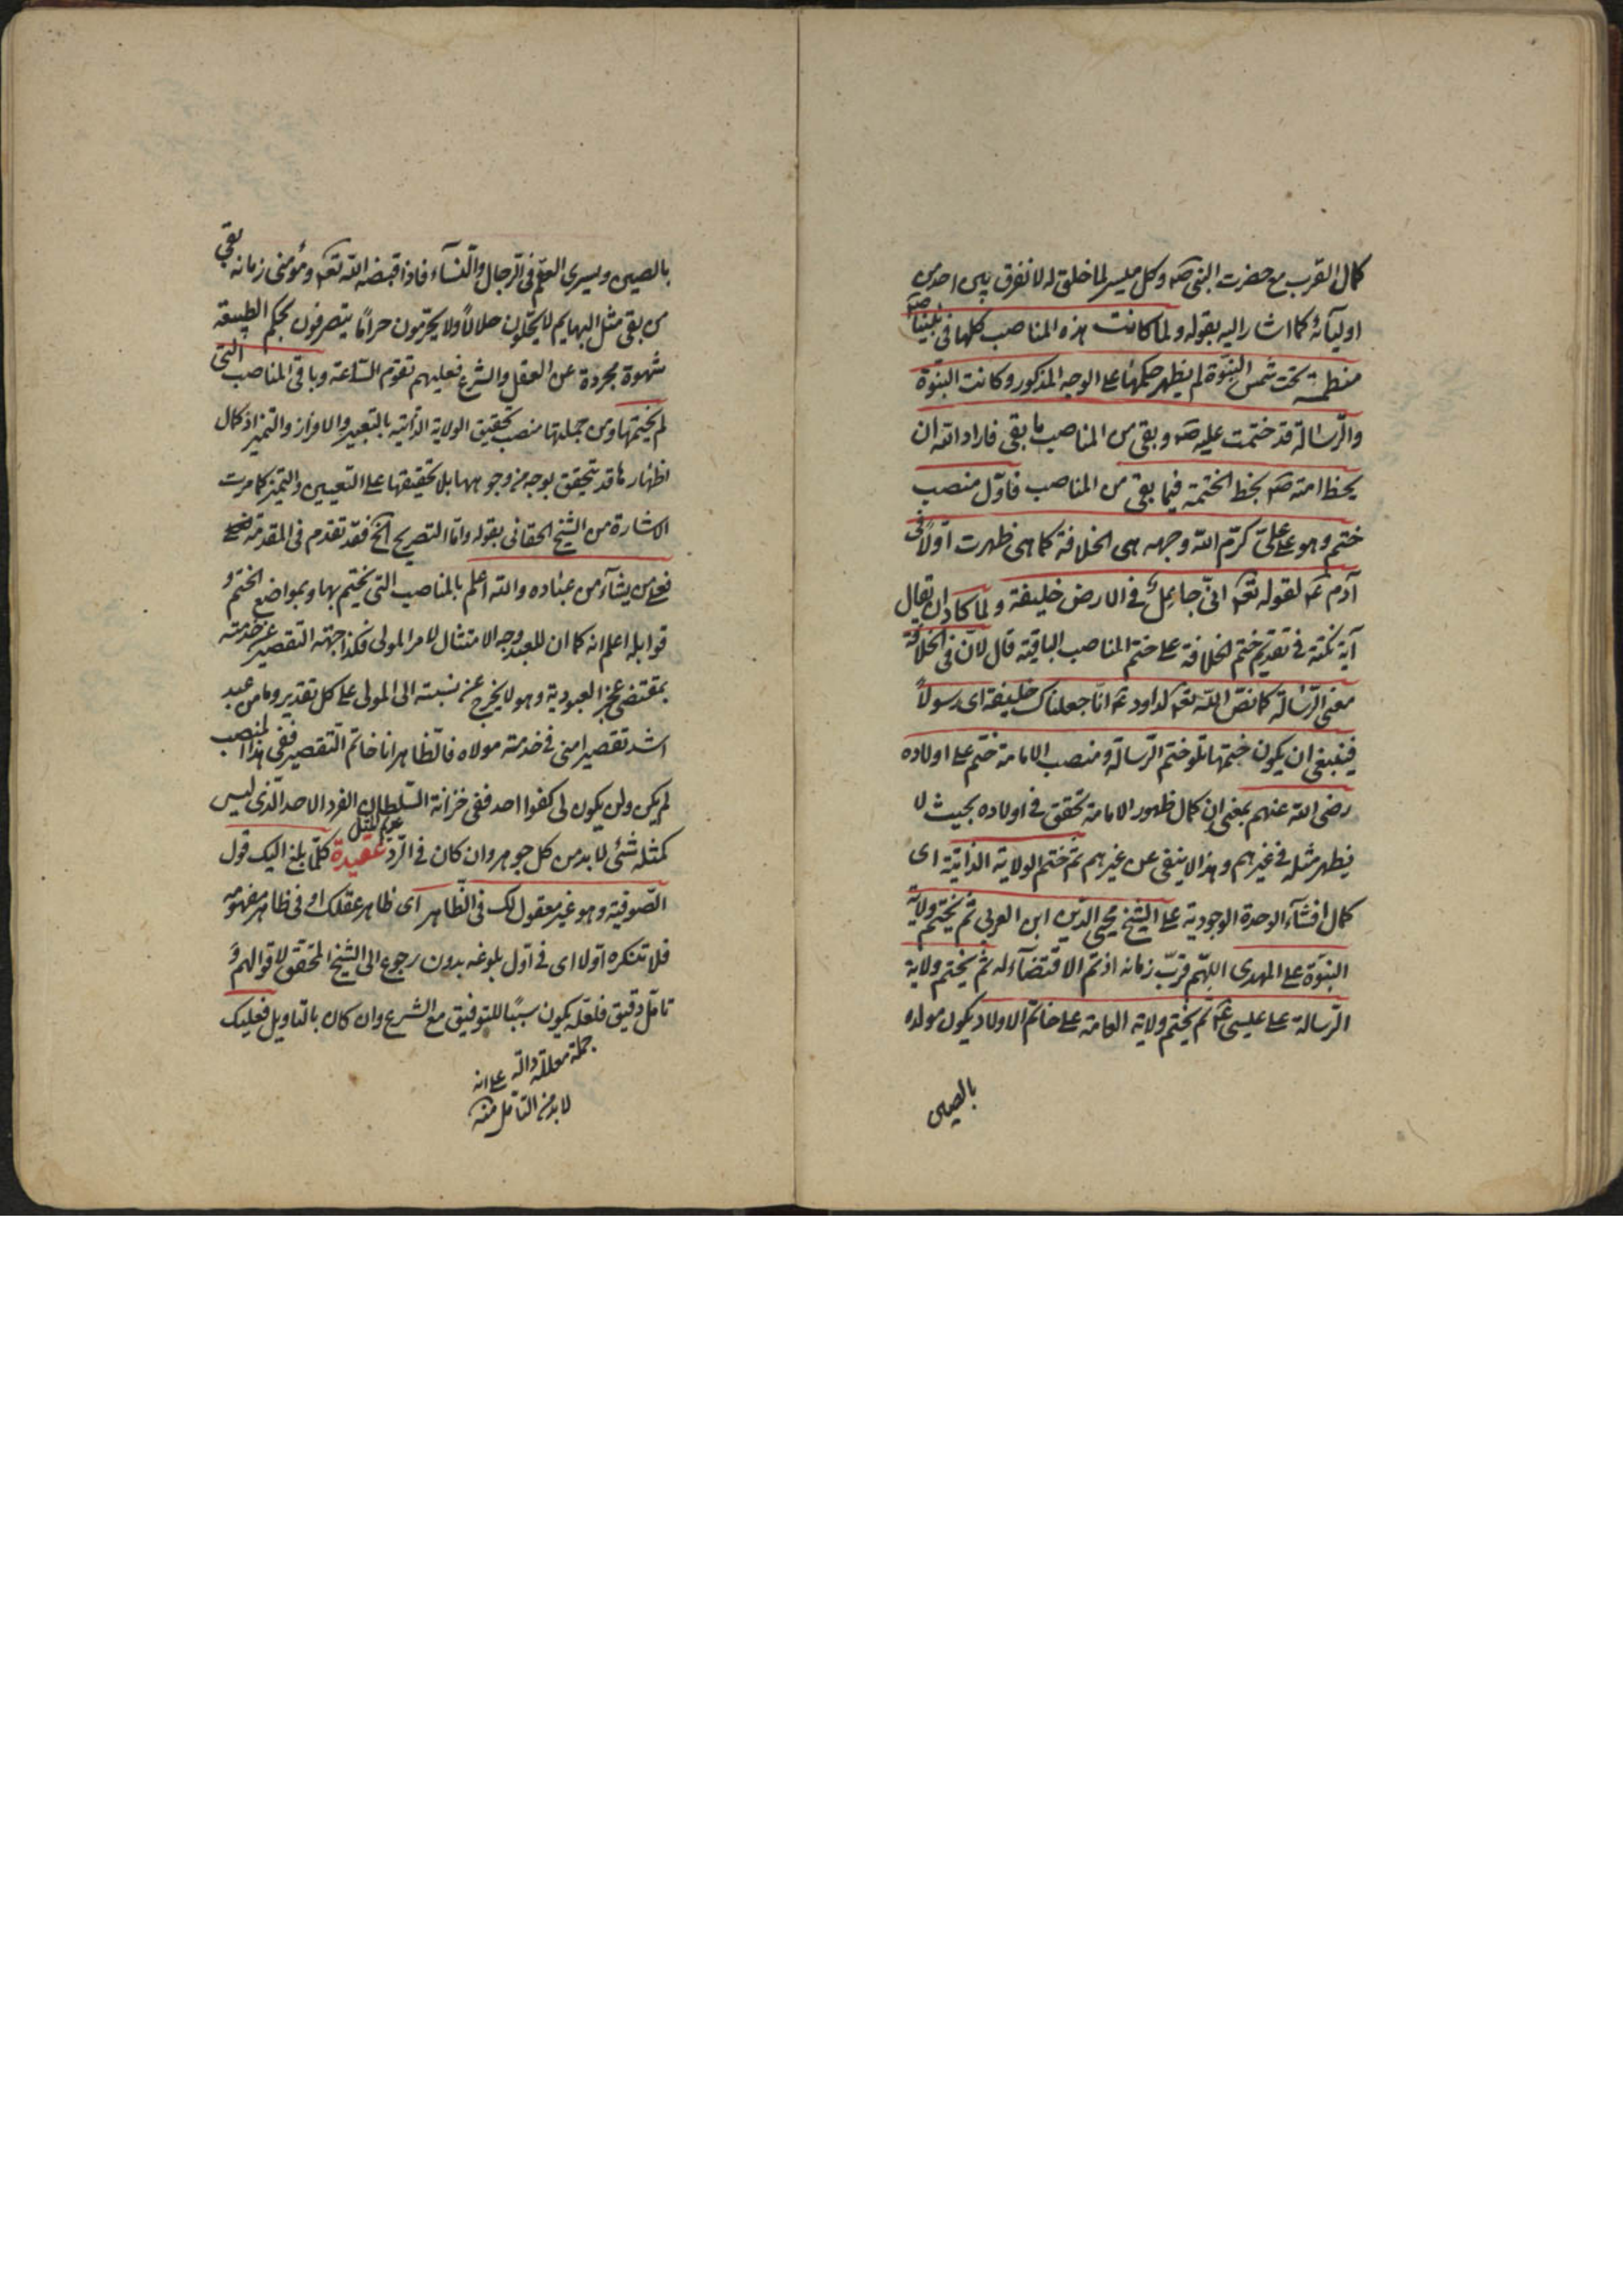 كمال القرب مع حضرت النبى صم وكل ميسر لما خلق له لا نفرق بين احد من
اوليائه كما اشار اليه بقوله ولما كانت هذه المناصب كلها فى نبينا صم
منطمسة تحت شمس النبوة لم يظهر حكمها على الوجه المذكور وكانت النبوة
والرسالة قد ختمت عليه صم وبقى من المناصب ما بقى فاراد الله ان
يحظ امته صم بحظ الختمية فيما بقى من المناصب فاول منصب
ختم وهو على على كرم الله وجهه هى الخلافة كما هى ظهرت اولا فى
آدم عم لقوله تعم انى جاعل فى الارض خليفة ولما كاد ان يقال
آية نكتة فى تقديم ختم الخلافة على ختم المناصب الباقية قال لان فى الخلافة
معنى الرسالة كما نص الله تعم لداود عم انا جعلناك خليفة اى رسولا
فينبغى ان يكون ختمها تلو ختم الرسالة ومنصب الامامة ختم على اولاده
رضى الله عنهم بمعنى ان كمال ظهور الامامة تحقق فى اولاده بحيث لا
يظهر مثله فى غيرهم وهذا لا ينفى عن غيرهم ثم ختم الولاية الذاتية اى
كمال افشاء الوحدة الوجودية على الشيخ محيى الدين ابن العربى ثم يختم ولاية
النبوة على المهدى اللهم قرب زمانه اذ تم الاقتضاء له ثم يختم ولاية
الرسالة على عيسى عم ثم يختم ولاية العامة على خاتم الاولاد يكون مولده
بالصين
بالصين ويسرى العقم فى الرجال والنساء فاذا قبضه الله تعم ومؤمنى زمانه بقى
من بقى مثل البهايم لا يحلون حلالا ولا يحرمون حراما يتصرفون بحكم الطبيعة
شهوة مجردة عن العقل والشرع فعليهم تقوم الساعة وباقى المناصب التى
لم يختمها ومن جملتها منصب تحقيق الولاية الذاتية بالتعبير والافراز والتميز اذ كمال
اظهار ما قد يتحقق بوجه من وجوهها بلا تحقيقها على التعيين والتميز كما مرت
الاشارة من الشيخ الحقانى بقوله واما التصريح الخ فقد تقدم فى المقدمة
فعلى من يشاء من عباده والله اعلم بالمناصب التى يختم بها وبمواضع الختم و
قوابله اعلم انه كما ان للعبد وجه الامتثال لامر المولى فكذا جهة التقصير عن خدمته
بمقتضى عجز العبودية وهو لا يخرج عن نسبته الى المولى على كل تقدير وما من عبد
اشد تقصيرا منى فى خدمة مولاه فالظاهر انا خاتم التقصير ففى هذا المنصب
لم يكن ولن يكون لى كفوا احد ففى خزانة السلطان الفرد الاحد الذى ليس
كمثله شئ لا بد من كل جوهر وان كان فى الرد عديم المثل عقيدة كلما بلغ اليك قول
الصوفية وهو غير معقول لك فى الظاهر اى ظاهر عقلك او فى ظاهر مفهومه
فلا تنكره اولا اى فى اول بلوغه بدون رجوع الى الشيخ المحقق لاقوالهم و
تأمل دقيق فلعله يكون سببا للتوفيق مع الشرع وان كان بالتاويل فعليك
جملة معللة دالة على انه
لا بد من التأمل منه